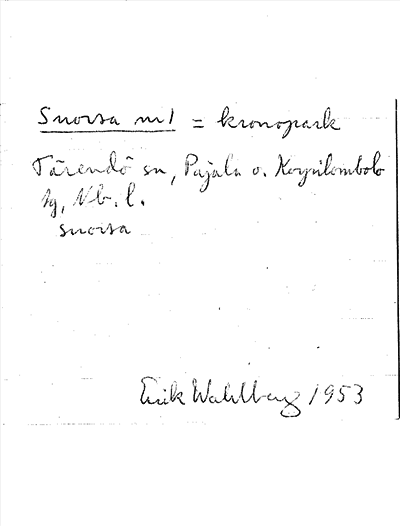 Snorsa m1 = kronopark
Tärendö sn, Pajala o. Korpilombolo
tg, Nb. l.
snorsa
Erik Wahlberg 1953